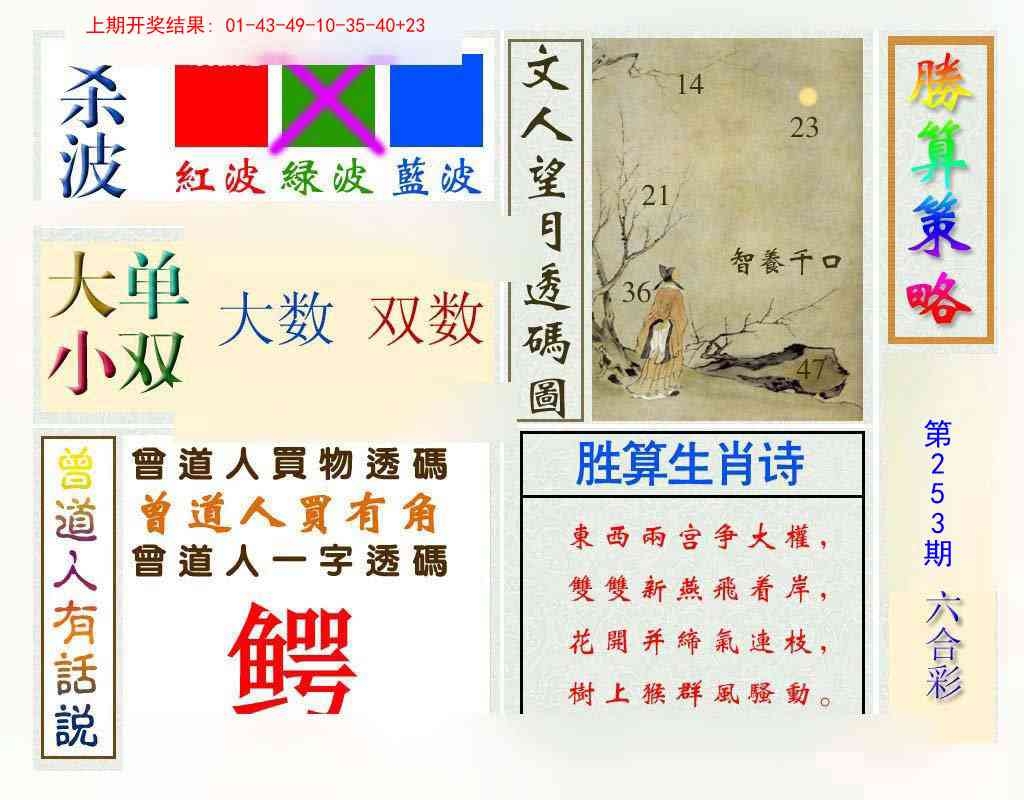 上期开奖结果: 01-43-49-10-35-40+23
杀波
紅波 緑波 藍波
大单
小双
大数 双数
文人望月透碼圖
14
23
21
智養千口
36
47
勝算策略
曾道人有話説
曾道人買物透碼
曾道人買有角
曾道人一字透碼
鳄
胜算生肖诗
東西兩宫争大權，
雙雙新燕飛着岸，
花開并締氣連枝，
樹上猴群風騷動。
第253期
六合彩